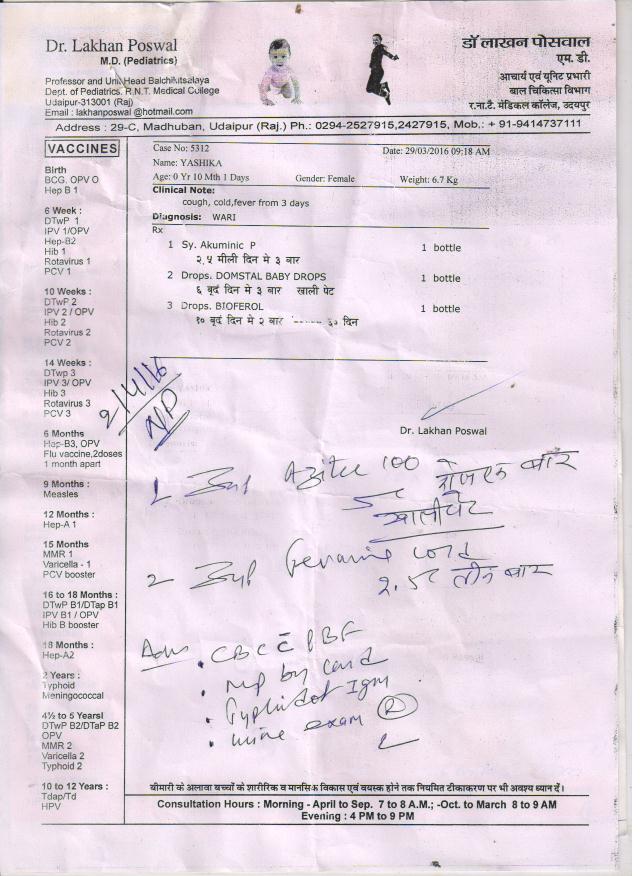 Dr. Lakhan Poswal
M.D. (Pediatrics)
Professor and Unit Head Balchikitsalaya
Dept. of Pediatrics. R.N.T. Medical College
Udaipur-313001 (Raj)
Email : lakhanposwal@hotmail.com
डॉ लाखन पोसवाल
एम. डी.
आचार्य एवं यूनिट प्रभारी
बाल चिकित्सा विभाग
र.ना.टै. मेडिकल कॉलेज, उदयपुर
Address : 29-C, Madhuban, Udaipur (Raj.) Ph.: 0294-2527915,2427915, Mob.: + 91-9414737111
VACCINES
Birth
BCG, OPV O
Hep B 1
6 Week :
DTwP 1
IPV 1/OPV
Hep-B2
Hib 1
Rotavirus 1
PCV 1
10 Weeks :
DTwP 2
IPV 2 / OPV
Hib 2
Rotavirus 2
PCV 2
14 Weeks :
DTwp 3
IPV 3/ OPV
Hib 3
Rotavirus 3
PCV 3
6 Months
Hep-B3, OPV
Flu vaccine,2doses
1 month apart
9 Months :
Measles
12 Months :
Hep-A 1
15 Months
MMR 1
Varicella - 1
PCV booster
16 to 18 Months :
DTwP B1/DTap B1
IPV B1 / OPV
Hib B booster
18 Months :
Hep-A2
2 Years :
Typhoid
Meningococcal
4½ to 5 Yearsl
DTwP B2/DTaP B2
OPV
MMR 2
Varicella 2
Typhoid 2
10 to 12 Years :
Tdap/Td
HPV
Case No: 5312
Date: 29/03/2016 09:18 AM
Name: YASHIKA
Age: 0 Yr 10 Mth 1 Days Gender: Female Weight: 6.7 Kg
Clinical Note:
cough, cold,fever from 3 days
Diagnosis: WARI
Rx
1 Sy. Akuminic P 1 bottle
२.५ मीली दिन मे ३ बार
2 Drops. DOMSTAL BABY DROPS 1 bottle
६ बूदं दिन मे ३ बार खाली पेट
3 Drops. BIOFEROL 1 bottle
१० बूदं दिन मे २ बार ------ ६० दिन
Dr. Lakhan Poswal
2/4/16
NP
1 Syp Azitec 100
रोज एक बार
खालीपेट
2 Syp cold
2.5 तीन बार
Adv . CBC c̄ PBF
. mp by card
. Typhidot Igm
. urine exam (R)
बीमारी के अलावा बच्चों के शारीरिक व मानसिक विकास एवं वयस्क होने तक नियमित टीकाकरण पर भी अवश्य ध्यान दें।
Consultation Hours : Morning - April to Sep. 7 to 8 A.M.; -Oct. to March 8 to 9 AM
Evening : 4 PM to 9 PM